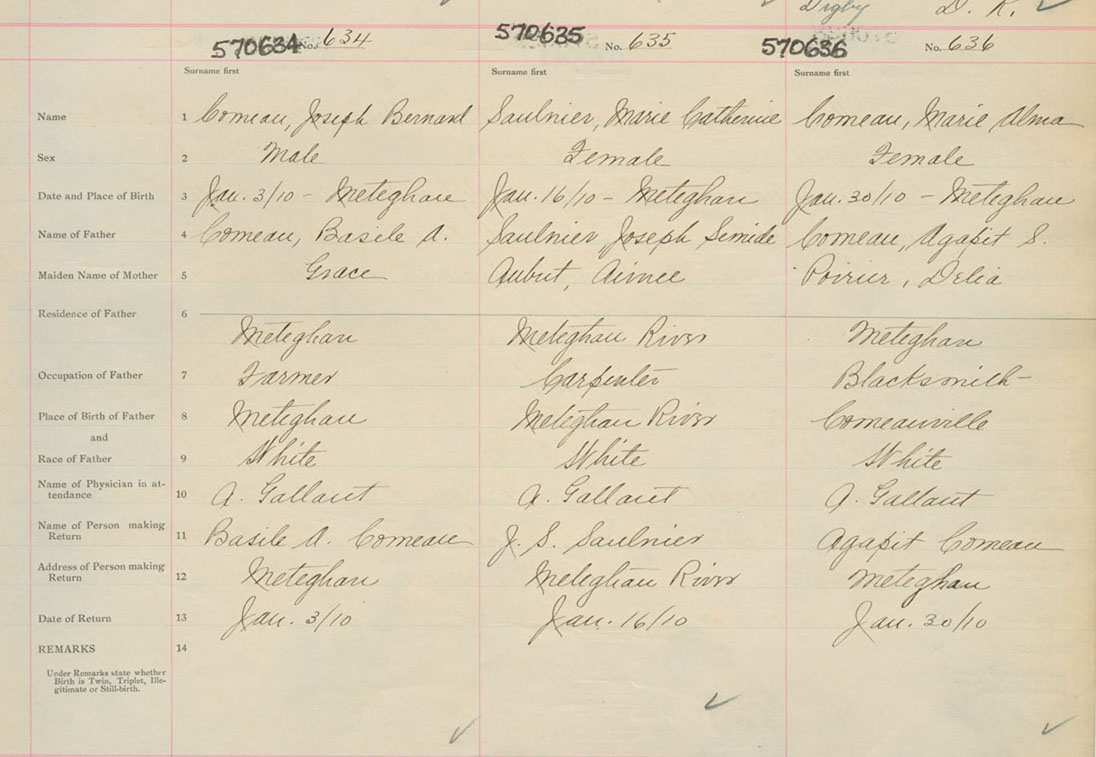 Digby D. R.
570634 No. 634 570635 No. 635 570636 No. 636
Surname first Surname first Surname first
Name 1 Comeau, Joseph Bernard Saulnier, Marie Catherine Comeau, Marie Alma
Sex 2 Male Female Female
Date and Place of Birth 3 Jan. 3/10 - Meteghan Jan. 16/10 - Meteghan Jan. 30/10 - Meteghan
Name of Father 4 Comeau, Basile A. Saulnier Joseph Simide Comeau, Agapit S.
Maiden Name of Mother 5 Grace Aubut, Aimee Poirier, Delia
Residence of Father 6
Meteghan Meteghan River Meteghan
Occupation of Father 7 Farmer Carpenter Blacksmith
Place of Birth of Father 8 Meteghan Meteghan River Comeauville
and
Race of Father 9 White White White
Name of Physician in at-
tendance 10 A. Gallant A. Gallant A. Gallant
Name of Person making
Return 11 Basile A. Comeau J. S. Saulnier Agapit Comeau
Address of Person making
Return 12 Meteghan Meteghan River Meteghan
Date of Return 13 Jan. 3/10 Jan. 16/10 Jan. 30/10
REMARKS 14
Under Remarks state whether
Birth is Twin, Triplet, Ille-
gitimate or Still-birth.